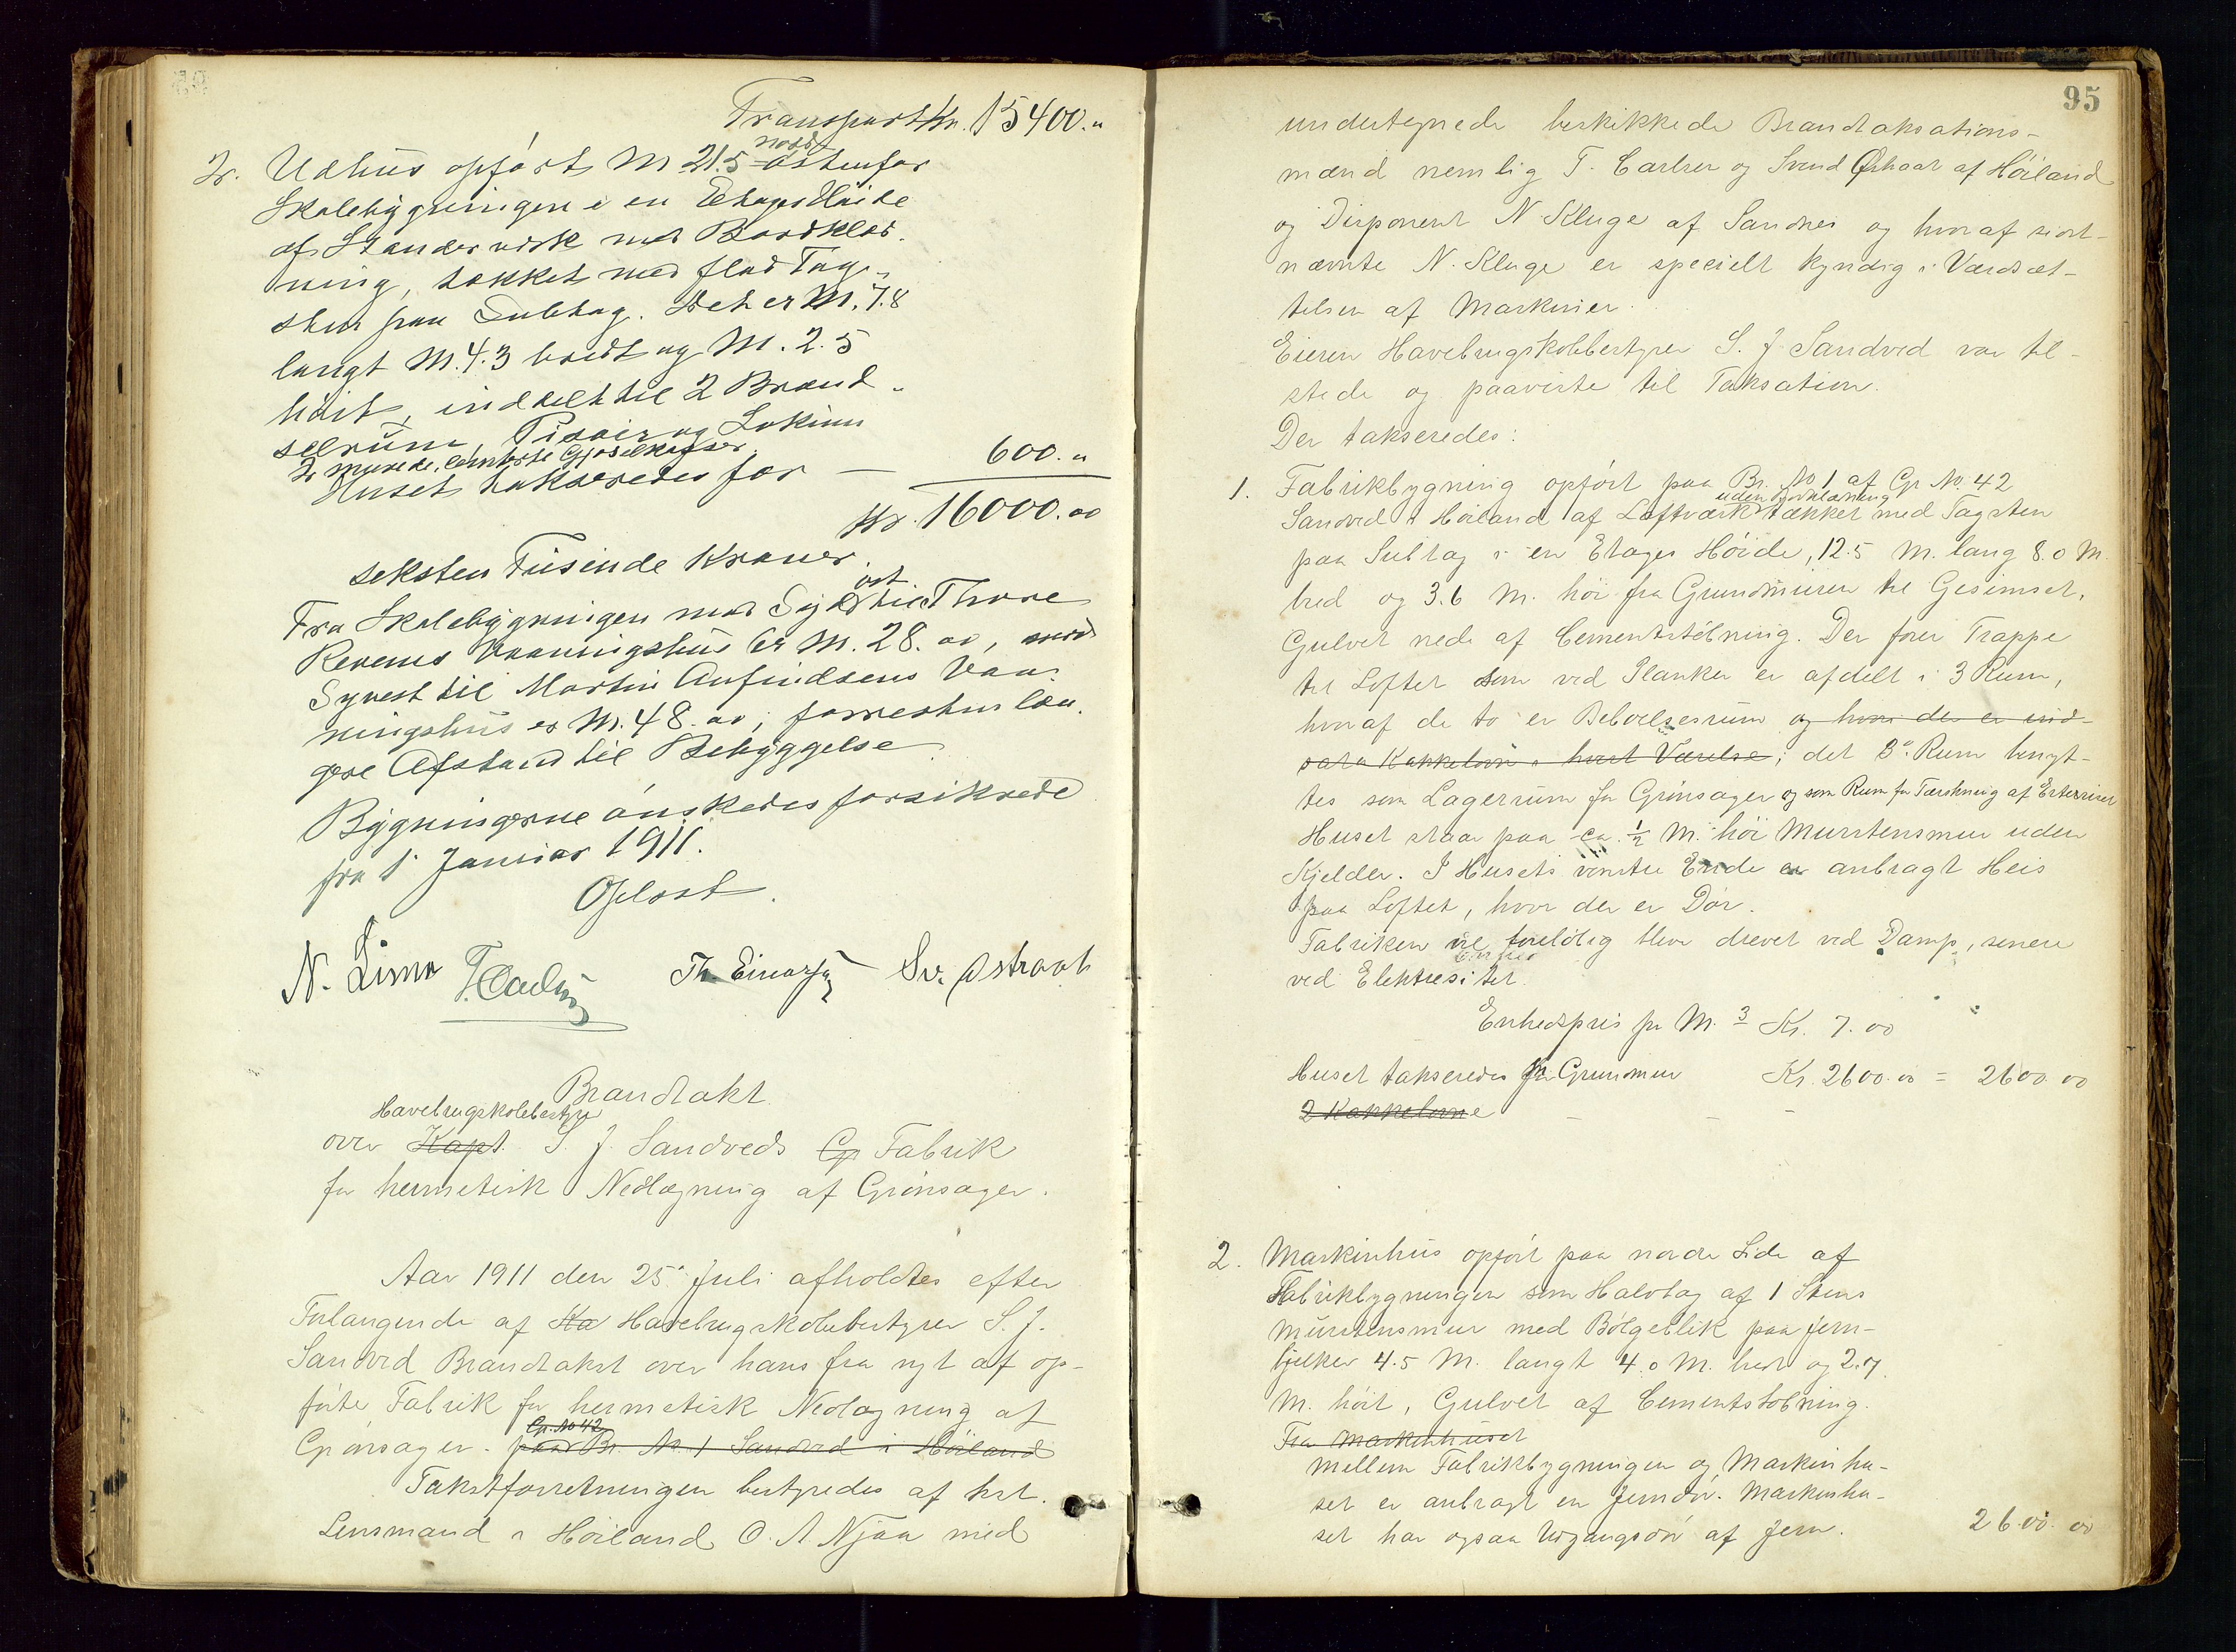 Transport Kr. 15400."
2. Udhus opført M 21.5 nord
østenfor
Skolebygningen i en Etages Høide
af Stenderværk med Bordklæd-
ning, tækket med flad Tag-
sten paa Subtag. Det er M. 7.8
langt M. 4.3 bredt og M. 2.5
høit, inddelt til 2 Brænd-
selrum, Pisoir og Lokum
2 murede, cementerte Gjødselkasser.
Huset takseredes for — 600."
Kr. 16000.00
seksten Tusinde Kroner.
Fra Skolebygningen mod Syd
øst til Thore
Revenes Vaaningshus er M. 28.00, mod
Sydvest til Martin Anfindsens Vaa-
ningshus er M. 48.00, forresten læn-
gere Afstand til Bebyggelse
Bygningerne ønskedes forsikrede
fra 1 Januar 1911.
Oplæst.
N. Lima T. Carlsen Th. Einarsen Sv. Østraat
Brandtakt
Havebrugskolebestyrer
over Kapt. S. J. Sandveds Gr Fabrik
for hermetisk Nedlægning af Grønsager.
Aar 1911 den 25. Juli afholdtes efter
Forlangende af Ka Havebrugskolebestyrer S. J.
Sandved Brandtakst over hans fra nyt af op-
førte Fabrik for hermetisk Nedlægning af
Gr. No 42
Grønsager. paa Br. No. 1 Sandved i Høiland
Takstforretningen bestyredes af kst.
Lensmand i Høiland O. A Njaa med
95
undertegnede beskikkede Brandtaksations-
mænd nemlig T. Carlsen og Svend Østraat af Høiland
og Disponent N. Kluge af Sandnes og hvoraf sidst-
nævnte N. Kluge er specielt kyndig i Værdsæt-
telsen af Maskiner.
Eieren Havebrugskolebestyrer S. J Sandved var til-
stede og paaviste til Taksation.
Der takseredes:
1. Fabrikbygning opført paa Br. No 1 af Gr No. 42
uden Bordklædning
Sandved i Høiland af Laftværk tækket med Tagsten
paa Subtag i en Etages Høide, 12.5 M. lang 8.0 M.
bred og 3.6 M. høi fra Grundmuren til Gesimset,
Gulvet nede af Cementstøbning. Der fører Trappe
til Loftet som ved Planker er afdelt i 3 Rum,
hvoraf de to er Beboelsesrum og hvor der er ind-
sat Kakkelovn i hvert Værelse; det 3. Rum benyt-
tes som Lagerrum for Grønsager og som Rum for Tærskning af Erterriset
Huset staar paa ca. 1/2 M. høi Murstensmur uden
Kjelder. I Husets venstre Ende er anbragt Heis
paa Loftet, hvor der er Dør.
Fabriken vil foreløbig blive drevet ved Damp, senere
ved Elektresitet.
Enhedspris pr M.3 Kr. 7.00
Huset takseredes fra Grundmur Kr. 2600.00 = 2600.00
2 Kakkelovne — — —
2. Maskinhus opført paa nordre Side af
Fabrikbygningen som Halvtag af 1 Stens
Murstensmur med Bølgeblik paa Jern-
bjelker 4.5 M. langt 4.0 M. bredt og 2.7
M. høit, Gulvet af Cementstøbning.
Fra Maskinhuset
Mellem Fabrikbygningen og Maskinhu-
set er anbragt en Jerndør. Maskinhu-
set har ogsaa Udgangsdør af Jern. 2600.00